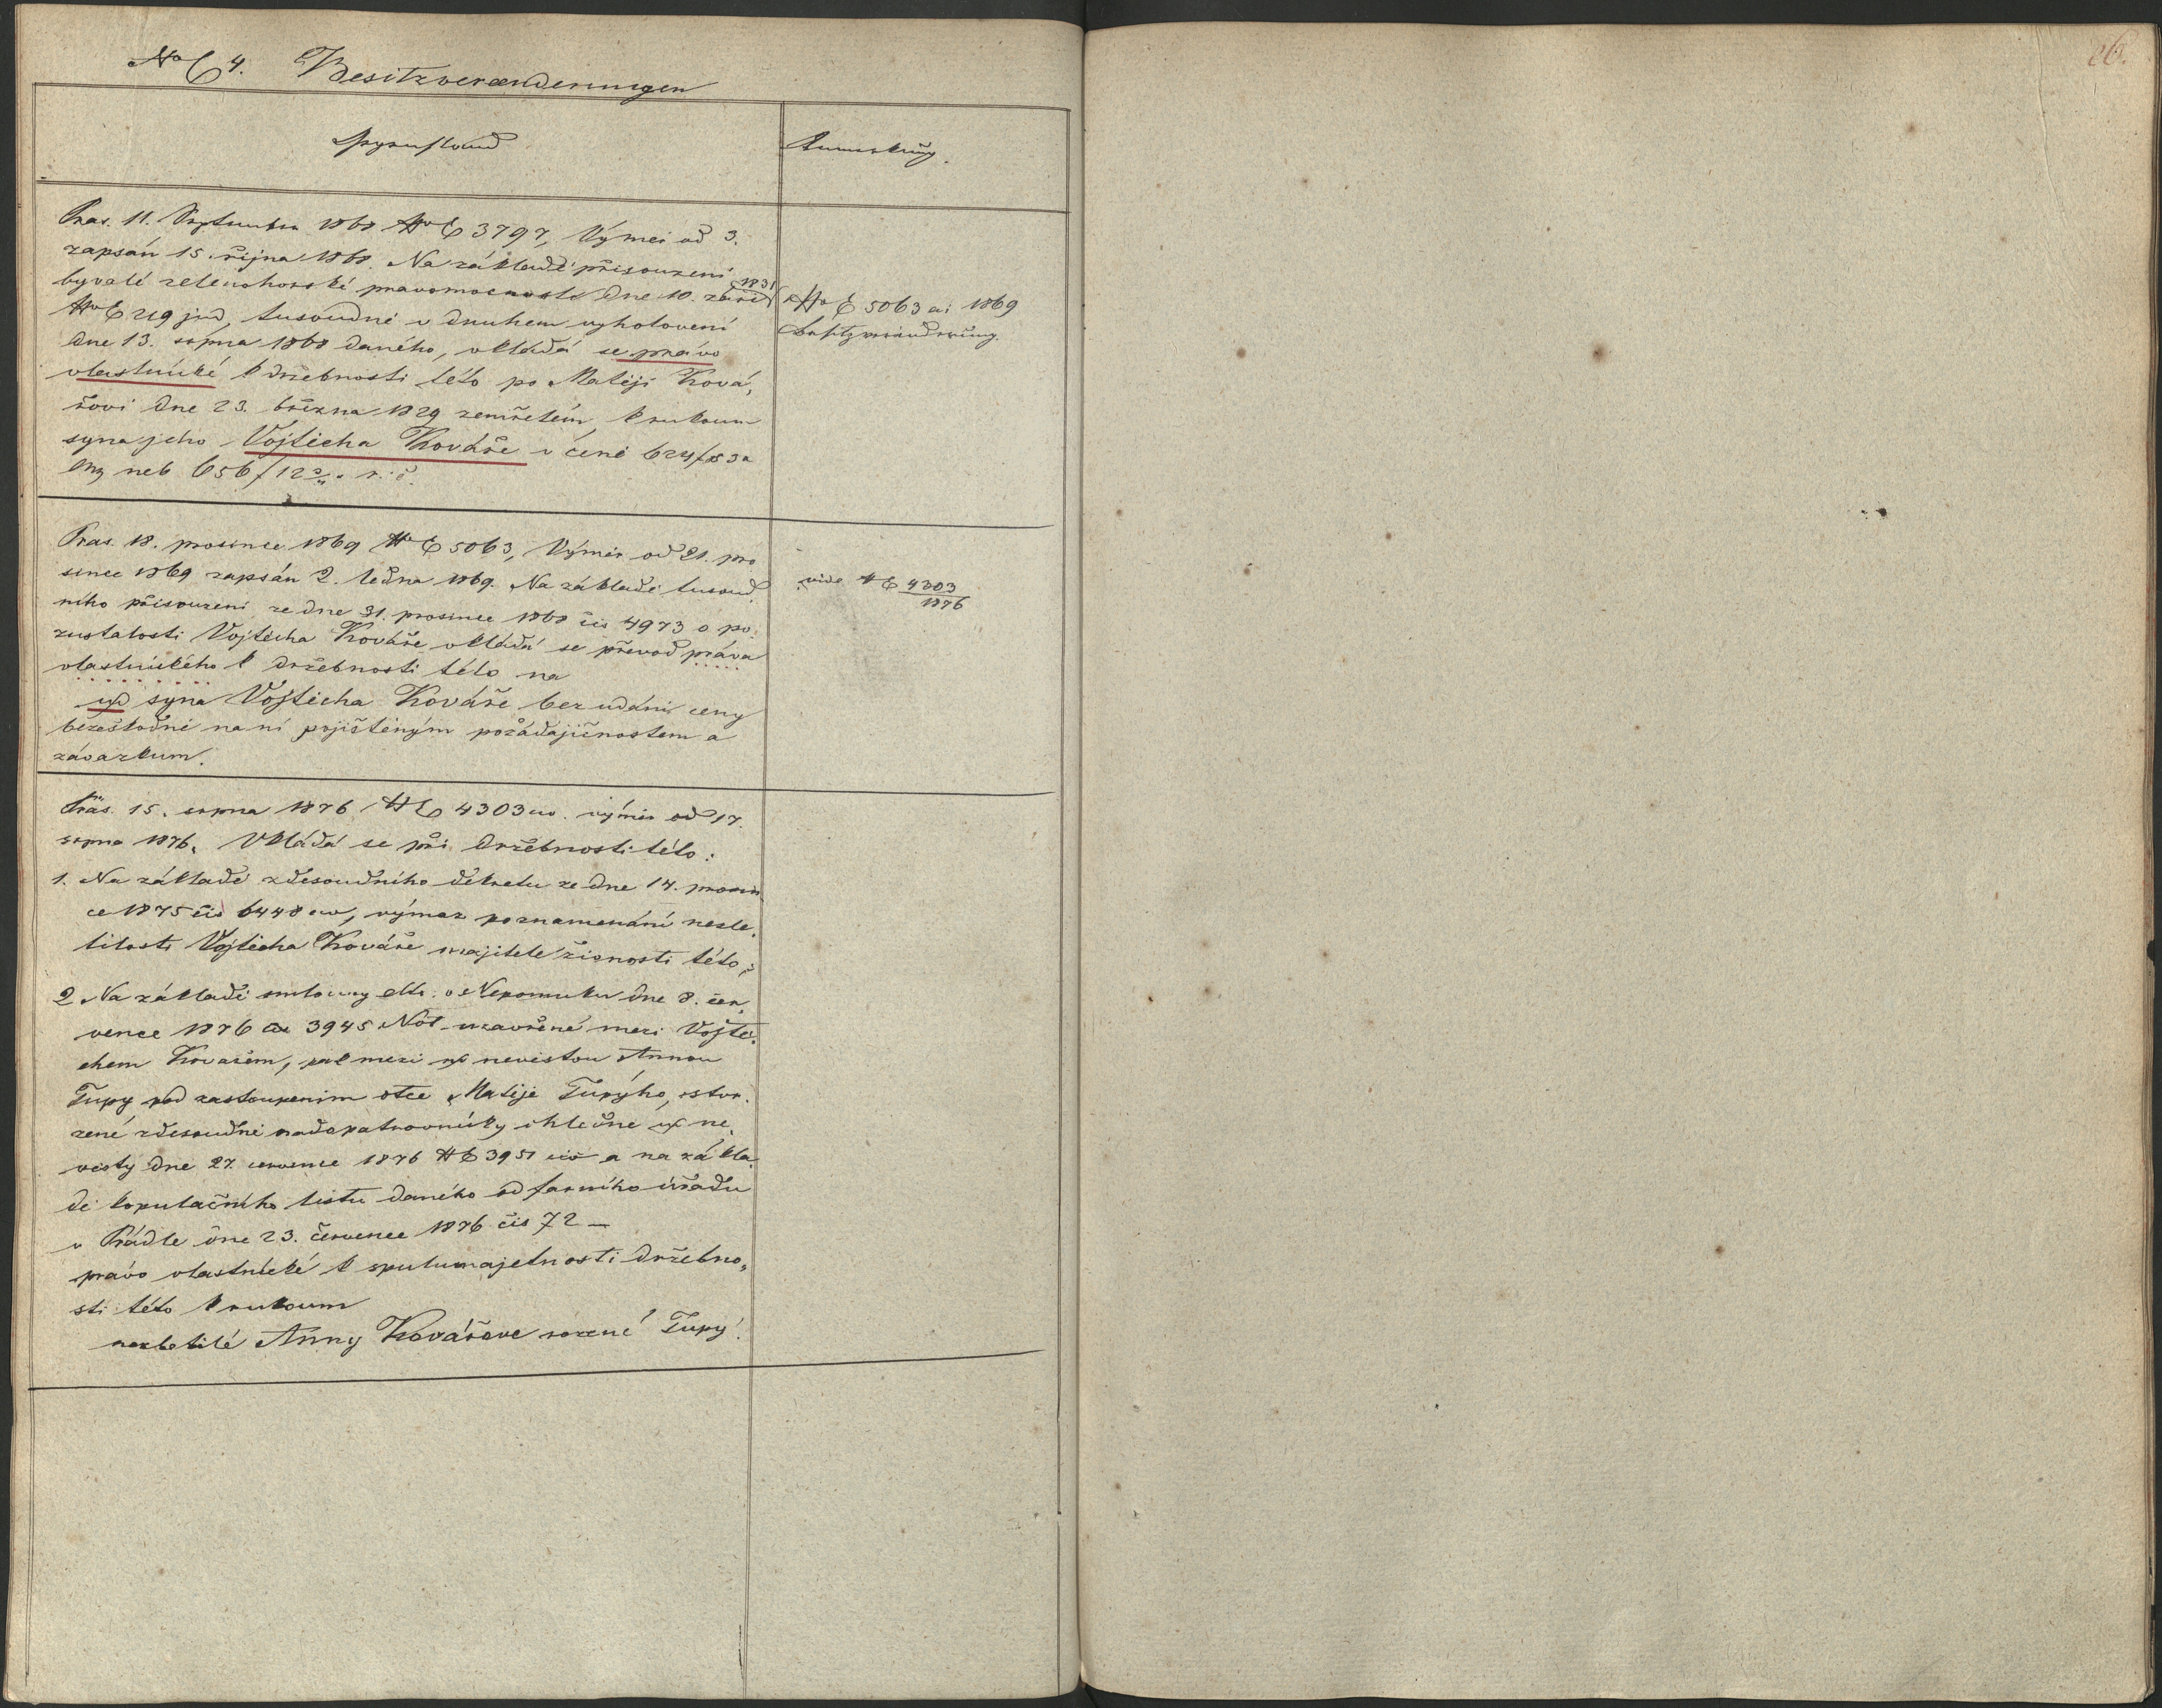 NoE 4. Besitzveränderungen
26.
Gegenstand
Anmerkung.
Pras. 11. September 1868 NoE 3797, Výměr od 3.
zapsán 15. října 1868. Na základě přisouzení
byvalé zelenohorské pravomocnosti dne 10. září 1831
NoE 219 jud, tusoudně v druhem vyhotovení
dne 13. srpna 1868 daného, vkládá se právo
vlastnické k držebnosti této po Matěji Ková,
řovi dne 23. března 1829 zemřelém, k rukoum
syna jeho Vojtěcha Kováře v ceně 624
neb 656 f 12
NoE 5063 ai 1869
Besitzveränderung.
Pras. 18. prosince 1869 NoE 5063, Výměr od 21. pro
since 1869 zapsán 2. ledna 1869. Na základě tusoud,
ního přisouzení ze dne 31. prosince 1868 čis 4973 o po,
zustalosti Vojtěcha Kováře vkládá se převod práva
vlastnického k držebnosti této na
syna Vojtěcha Kováře bez udání ceny
bezeškodně na ní pojištěným požádajičnostem a
závazkum.
vide NE 4303
1876
Präs. 15. srpna 1876 NE 4303 výměr od 17.
srpna 1876. Vkládá se při držebnosti této:
1. Na základě zdesoudního dekretu ze dne 14. prosin,
ce 1875 čis 6448 civ, výmaz poznamenání nezle,
tilosti Vojtěcha Kováře majitele živnosti této;
2 Na základě smlouvy dto: v Nepomuku dne 8. čer,
vence 1876 3945 Not uzavřené mezi Vojtě,
chem Kovařem, pak mezi nevěstou Annou
Tupy pod zastoupenim otce Matěje Tupýho, stvr,
zené zdesoudně nadopatrovnicky ohledne ne,
věsty dne 27. července 1876 NE 3951 civ a na zákla,
dě kopulačního listu daného od farního úřadu
v Prádle dne 23. července 1876 čis 72 —
právo vlastnické k spulumajetnosti držebno,
sti této k rukoum
nezletilé Anny Kovářove rozené Tupý.